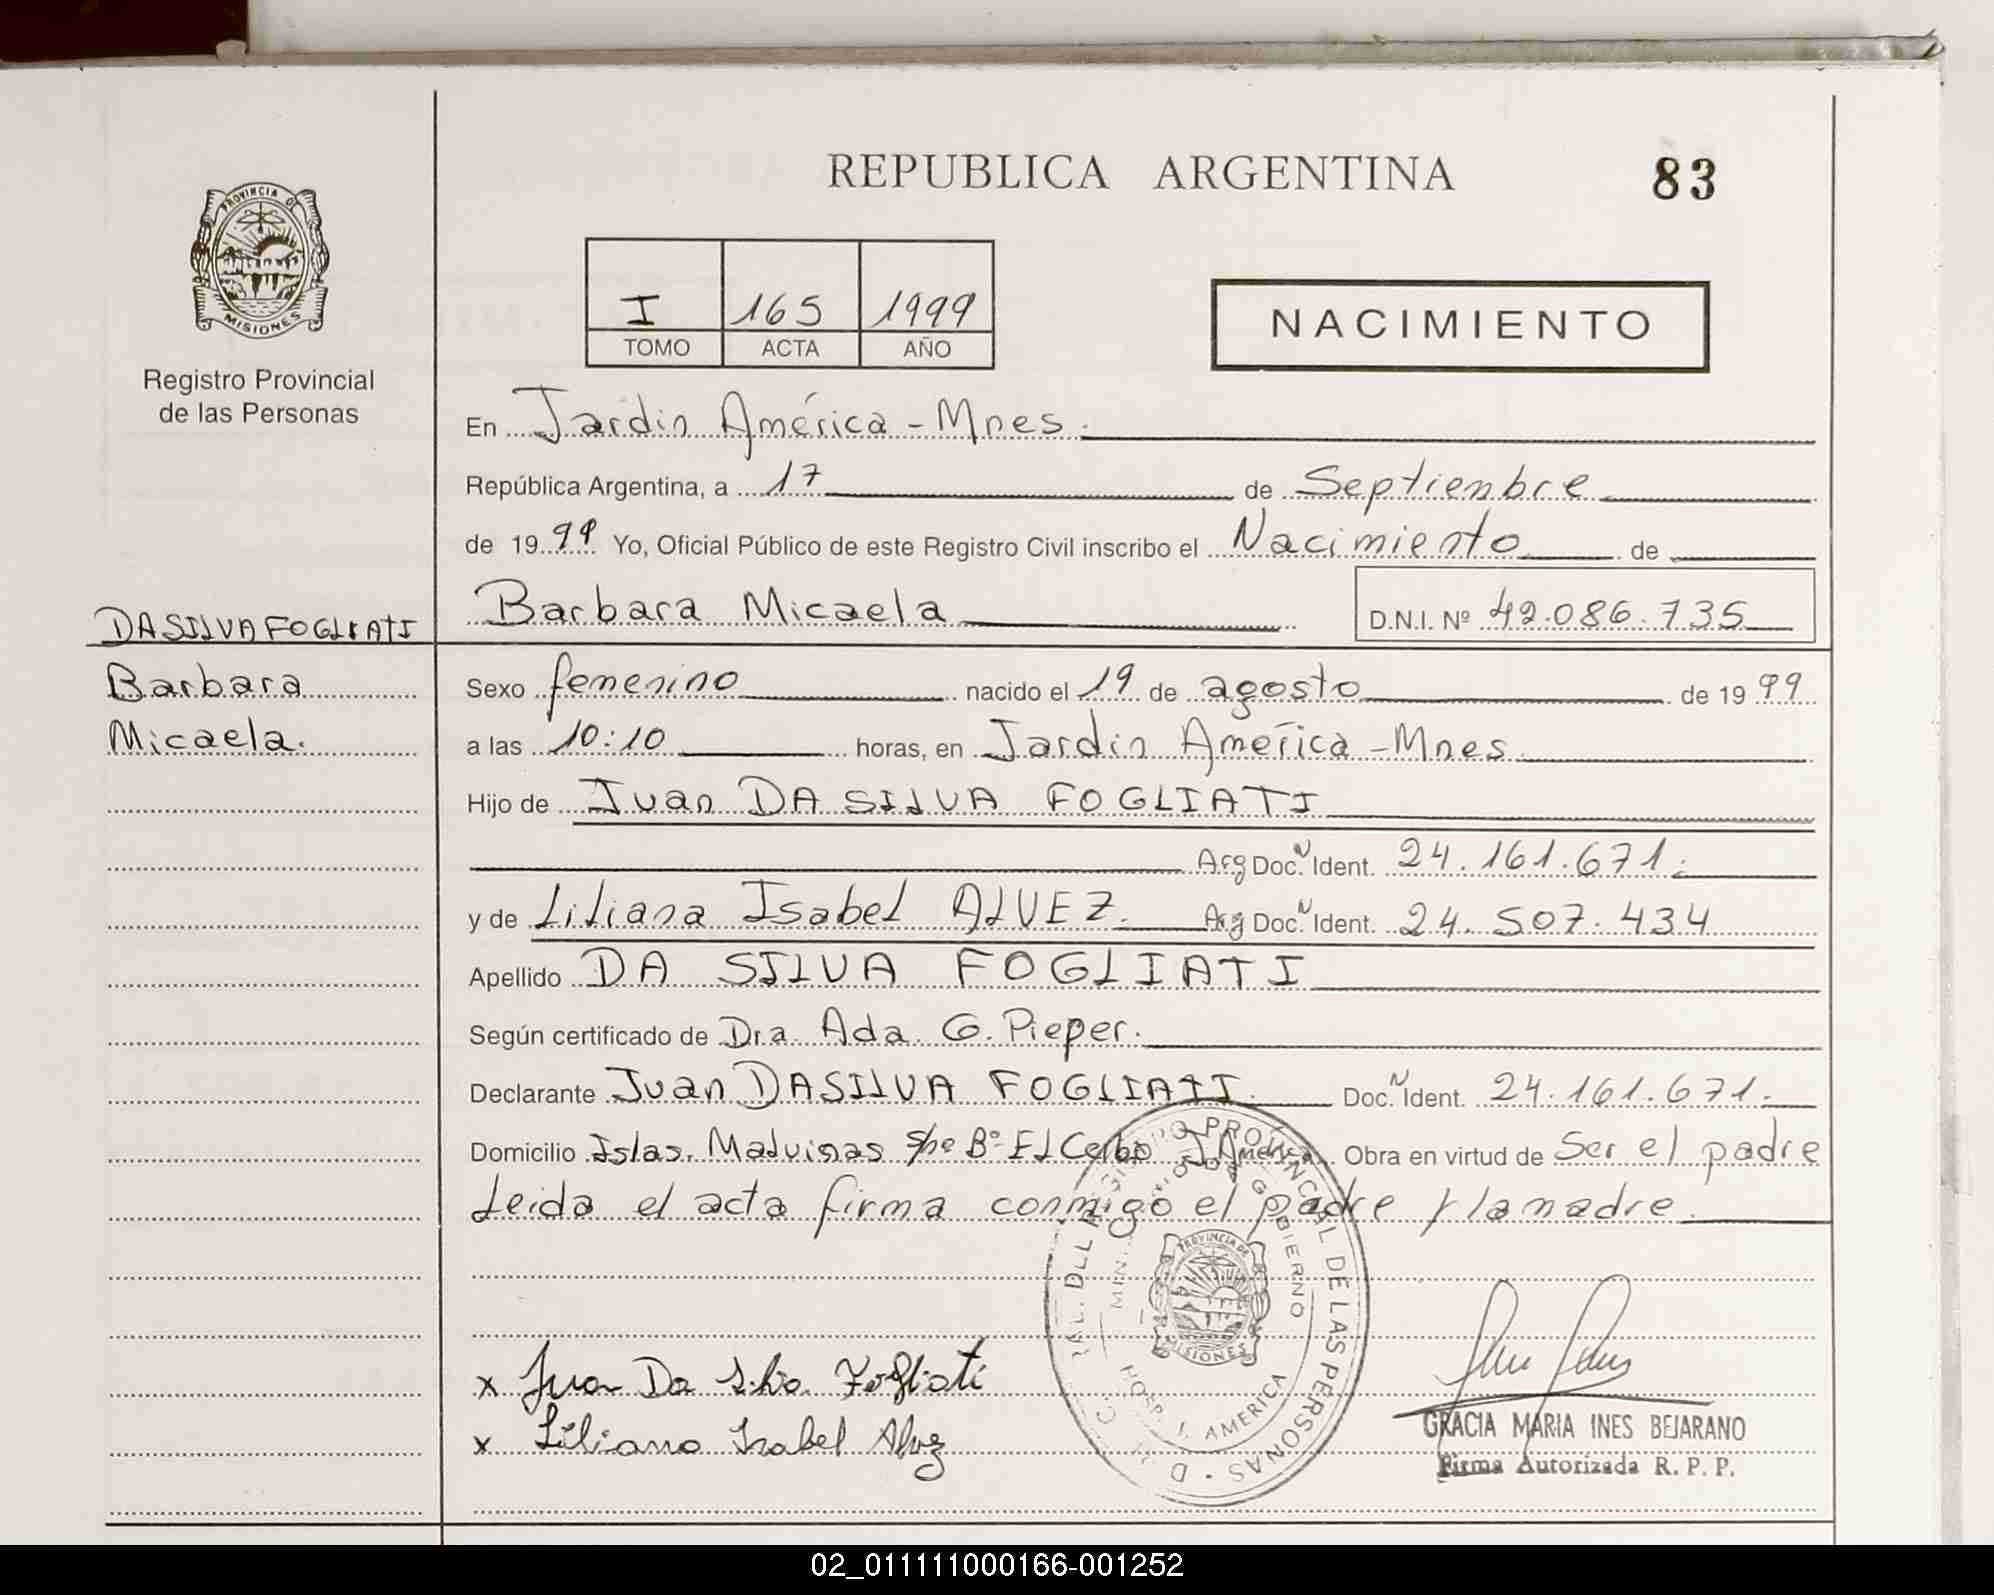 REPUBLICA ARGENTINA 83
PROVINCIA DE
MISIONES
Registro Provincial
de las Personas
I 165 1999
TOMO ACTA AÑO
NACIMIENTO
En Jardin América - Mnes.
República Argentina, a 17 de Septiembre
de 1999 Yo, Oficial Público de este Registro Civil inscribo el Nacimiento de
Barbara Micaela D.N.I. Nº 42.086.735
DA SILVA FOGLIATI
Barbara
Micaela.
Sexo femenino nacido el 19 de agosto de 1999
a las 10:10 horas, en Jardin América - Mnes.
Hijo de Juan DA SILVA FOGLIATI
Arg Doc. N Ident. 24.161.671.
y de Liliana Isabel ALVEZ. Arg Doc. N Ident. 24.507.434
Apellido DA SILVA FOGLIATI
Según certificado de Dra. Ada G. Pieper.
Declarante Juan DA SILVA FOGLIATI. Doc. N Ident. 24.161.671.
Domicilio Islas Malvinas Bº El J. América Obra en virtud de Ser el padre
Leida el acta firma conmigo el padre y la madre.
REGISTRO PROVINCIAL DE LAS PERSONAS
MINISTERIO DE GOBIERNO
PROVINCIA DE
MISIONES
HOSP. J. AMERICA
x Juan Da Silva Fogliati
x Liliana Isabel Alvez
GRACIA MARIA INES BEJARANO
Firma Autorizada R. P. P.
02_011111000166-001252